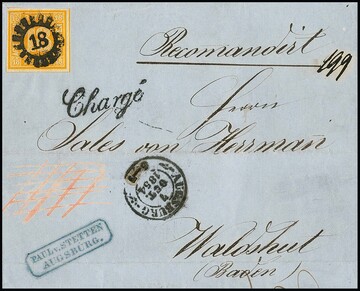 18
Recomandirt
199
Chargé
Herrn
Sales von Herrmañ
AUGSBURG
1854
Waldshut
(Baden)
PAUL v. STETTEN
AUGSBURG.